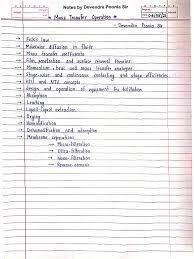 Notes by Devendra Poonia Sir
* Mass Transfer Operation *
- Devendra Poonia Sir
→ Fick's law
→ Molecular diffusion in fluids
→ Mass transfer coefficients
→ Film, penetration and surface renewal theories
→ Momentum, heat and mass transfer analogies
→ Stage-wise and continuous contacting and stage efficiencies
→ HTU and NTU concepts
→ design and operation of equipment for distillation
→ Absorption
→ Leaching
→ Liquid-liquid extraction
→ Drying
→ Humidification
→ Dehumidification and adsorption
→ Membrane separations
→ Micro-filtration
→ Ultra-filtration
→ Nano-filtration
→ Reverse-osmosis